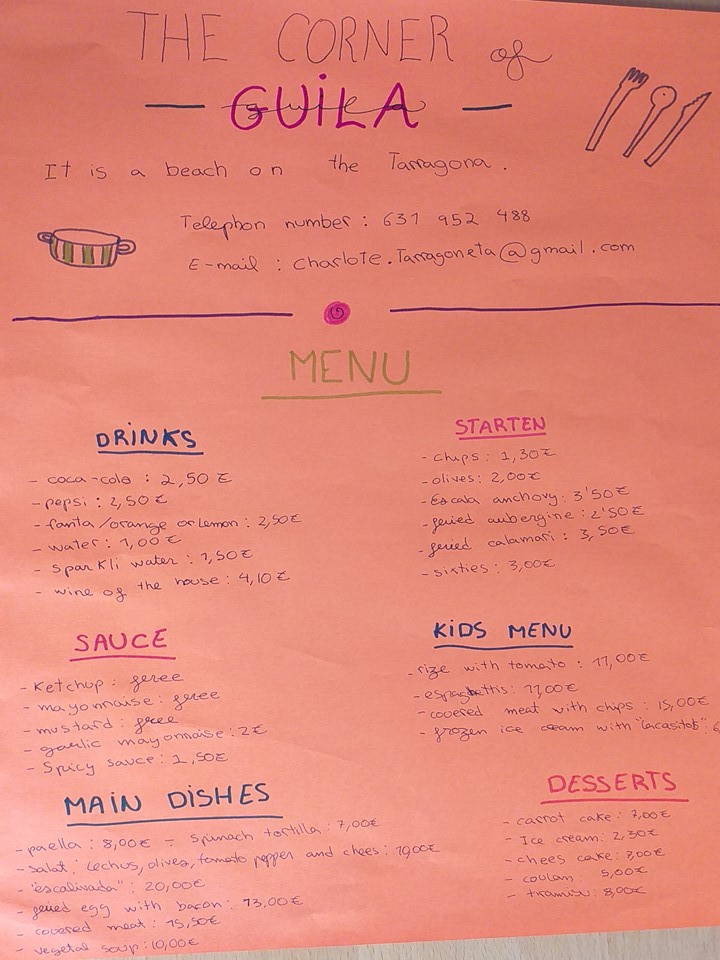 THE CORNER of
GUiLA
It is a beach on the Tarragona.
Telephon number : 631 952 488
E-mail : charlote.Tarragoneta@gmail.com
MENU
DRiNKS
- coca-cola : 2,50 €
- pepsi : 2,50 €
- fanta/orange or Lemon : 2,50€
- water : 1,00 €
- sparkli water : 1,50€
- wine of the house : 4,10 €
STARTEN
- chips : 1,30€
- olives : 2,00€
- Escala anchovy : 3'50€
- fried aubergine : 2'50€
- fried calamari : 3,50€
- sixties : 3,00€
SAUCE
- Ketchup : free
- mayonnaise : free
- mustard : free
- garlic mayonnaise : 2€
- Spicy sauce : 1,50€
KiDS MENU
- rize with tomato : 11,00€
- espaghettis : 11,00€
- covered meat with chips : 15,00€
- frozen ice cream with "lacasitos" :
MAIN DiSHES
- paella : 8,00€ - Spinach tortilla : 7,00€
- salat : Lechus, olives, tomato pepper and chees : 10,00€
- "escalivada" : 20,00€
- fried egg with bacon : 13,00€
- covered meat : 15,50€
- vegetal soup : 10,00€
DESSERTS
- carrot cake : 7,00€
- Ice cream : 2,50€
- chees cake : 7,00€
- coulan : 5,00€
- tiramisu : 8,00€